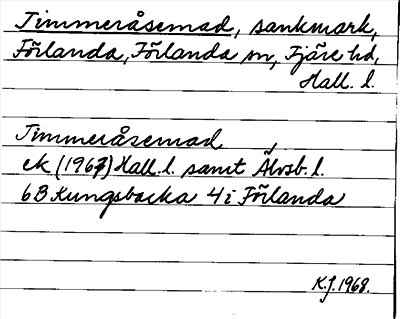 Timmeråsemad, sankmark,
Förlanda, Förlanda sn, Fjäre hd,
Hall. l.
Timmeråsemad
ek (1967) Hall. l. samt Älvsb. l.
6B Kungsbacka 4i Förlanda
K.J. 1968.